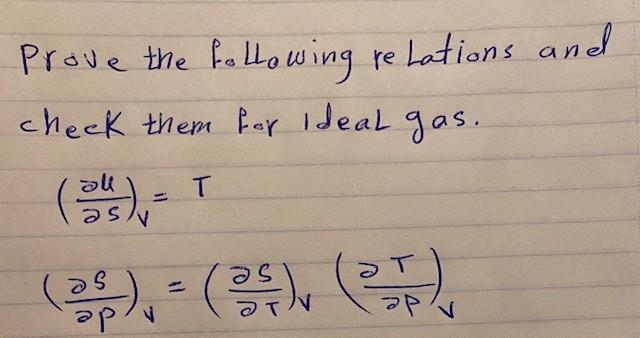 Prove the following relations and
check them for ideal gas.
(∂u/∂s)ᵥ = T
(∂s/∂p)ᵥ = (∂s/∂T)ᵥ (∂T/∂p)ᵥ